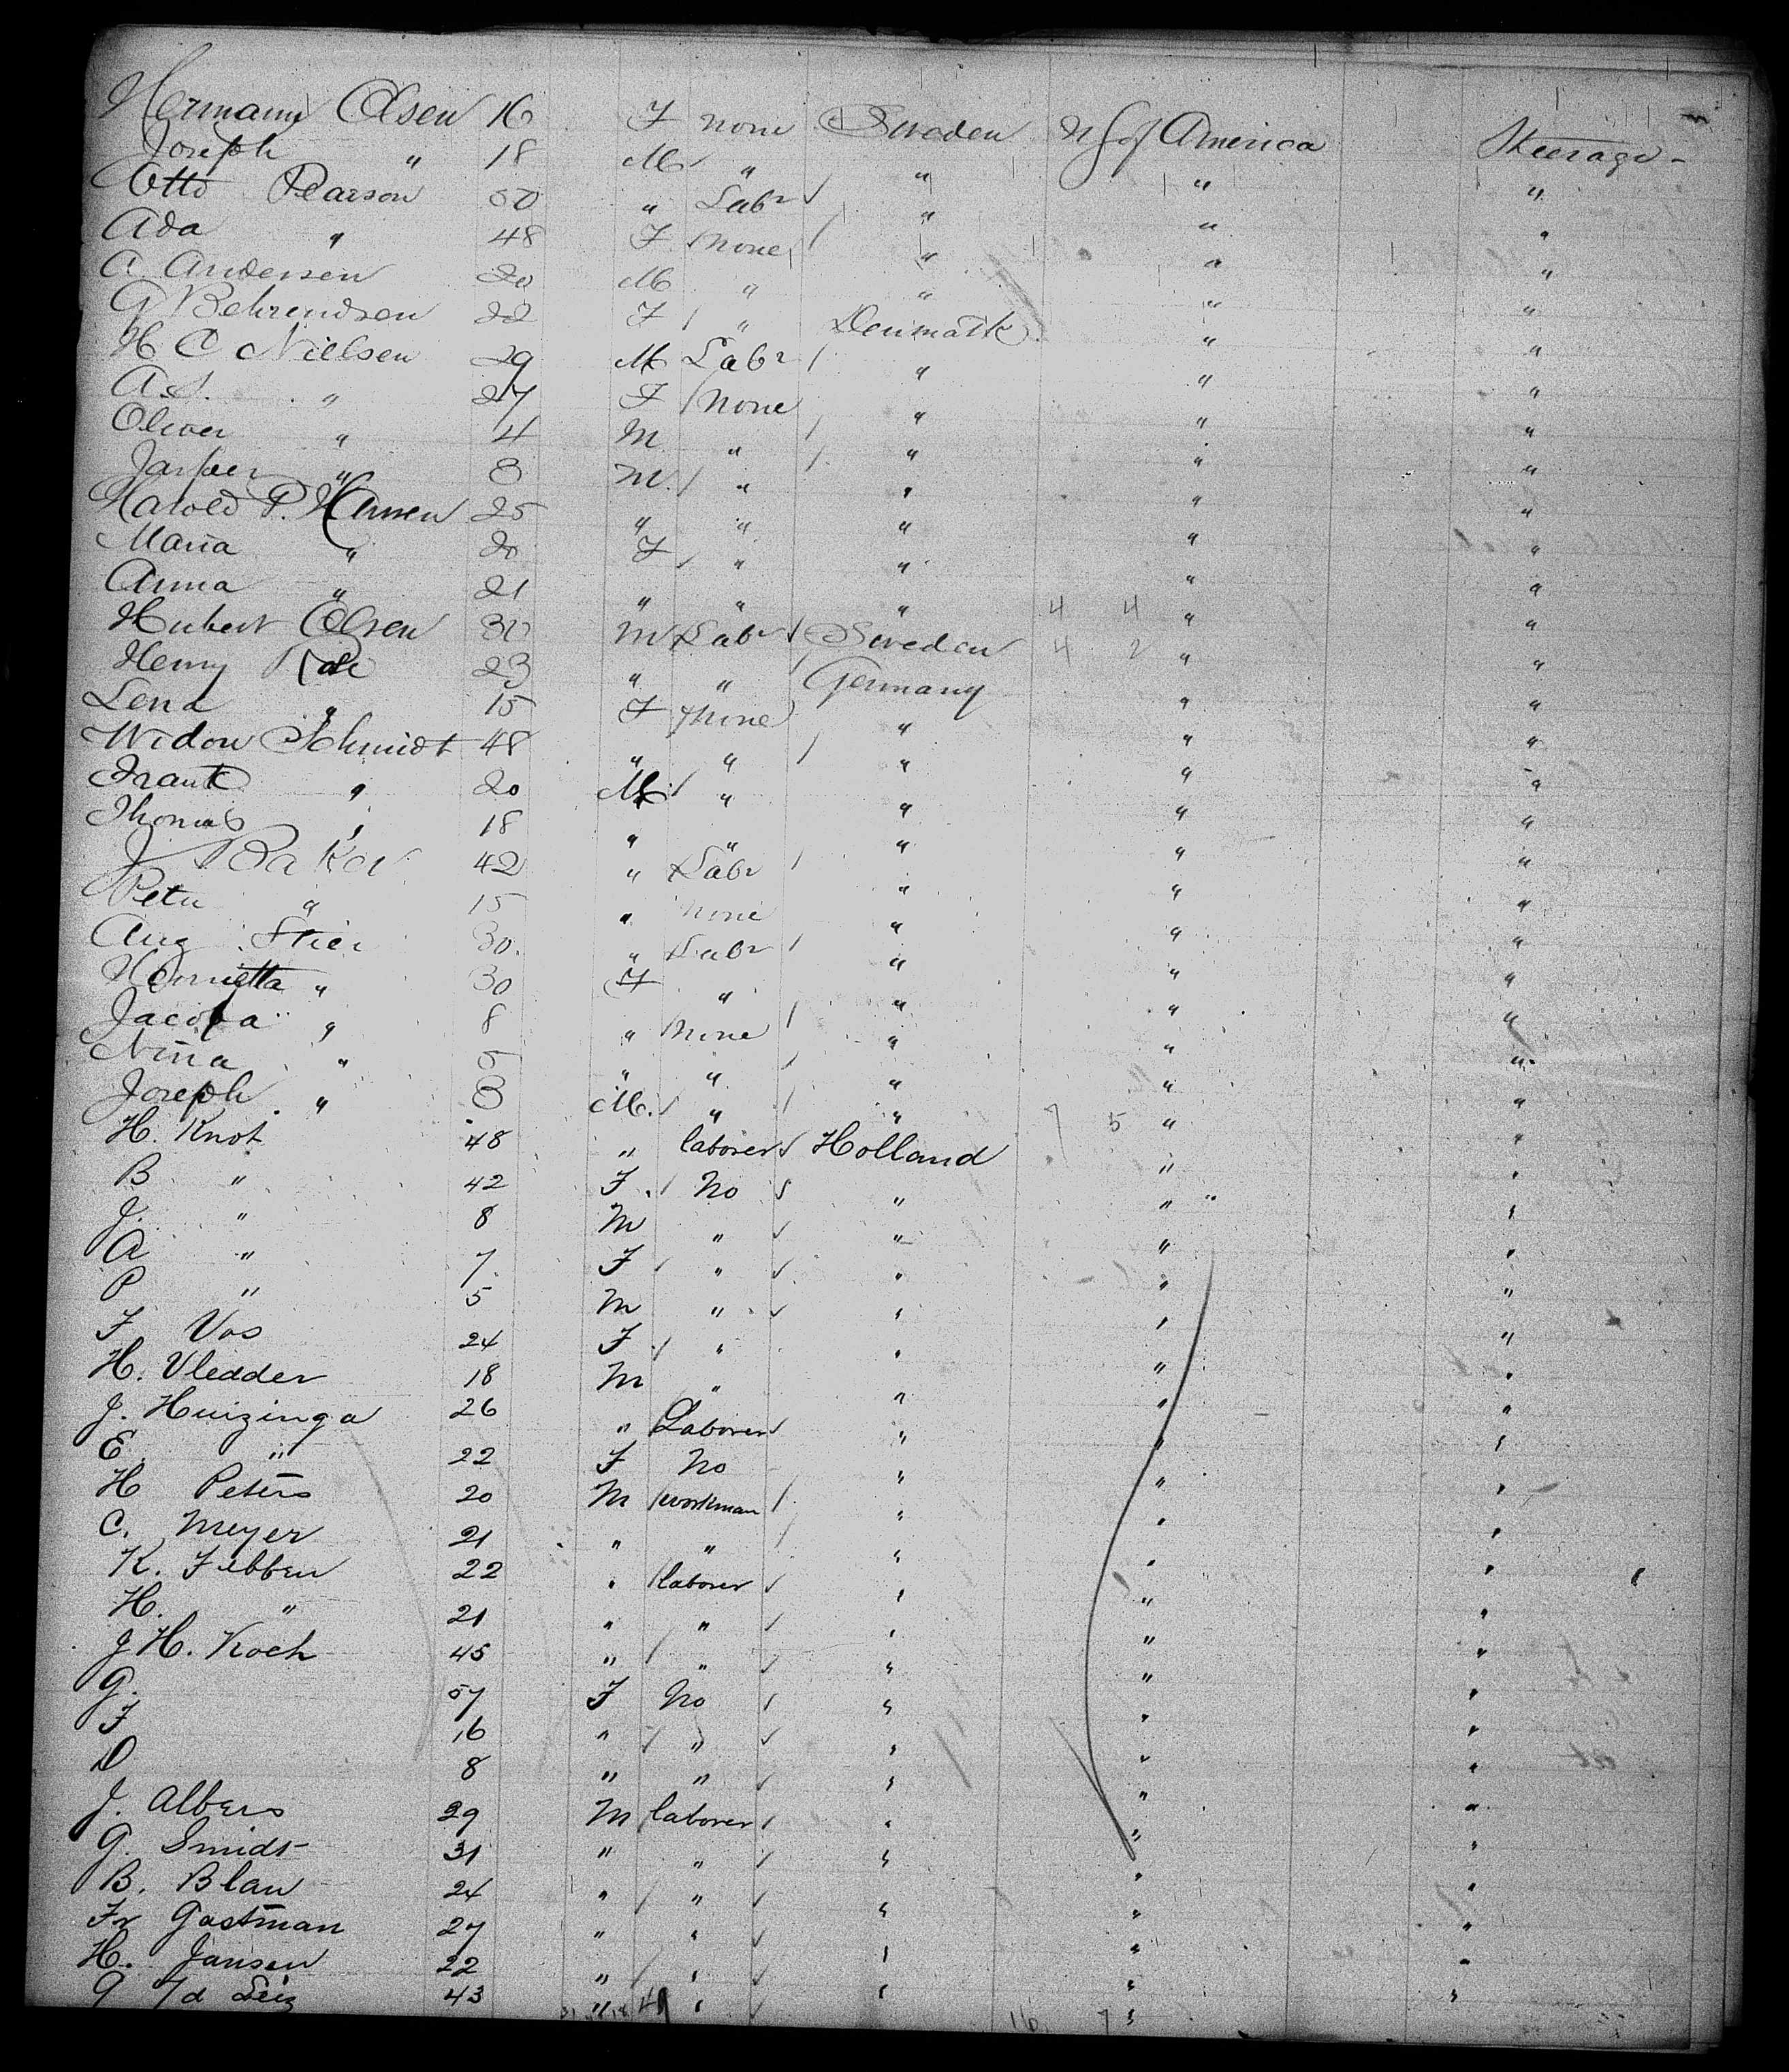 Hermann Olsen 16 F none Sweden U S of America Steerage -
Joseph " 18 M " " " "
Otto Pearson 50 " Labr " " "
Ada " 48 F none " " "
A. Andersen 20 M " " " "
A Behrendsen 22 F " Denmark " "
H C Nielsen 29 M Labr " " "
A.S. " 27 F none " " "
Oliver " 4 M " " " "
Jasper " 8 M. " " " "
Harold P. Hansen 25 " " " " "
Maria " 20 F " " " "
Anna " 21 " " " 4 4 " "
Hubert Olsen 30 M Labr Sweden 4 2 " "
Henry 23 " " Germany " "
Lena " 15 F none " " "
Widow Schmidt 48 " " " " "
Frank " 20 M " " " "
Thomas " 18 " " " " "
J Baker 42 " Labr " " "
Peter " 15 " none " " "
Aug. Stier 30. " Labr " " "
Henrietta " 30 F " " " "
Jacoba " 8 " none " " "
Nina " 5 " " " " "
Joseph " 8 M. " " 7 5 " "
H. Knot 48 " laborer Holland " "
B " 42 F. No " " "
J. " 8 M " " " "
A " 7 F " " " "
P " 5 M " " " "
F Vos 24 F " " " "
H. Vledder 18 M " " " "
J. Huizinga 26 " Laborer " " "
E. " 22 F No " " "
H Peters 20 M workman " " "
C. Meyer 21 " " " " "
K. Febben 22 " laborer " " "
H. " 21 " " " " "
J H. Koch 45 " " " " "
G. 57 F No " " "
F 16 " " " " "
D 8 " " " " "
J. Albers 29 M laborer " " "
G. Smidt 31 " " " " "
B. Blau 24 " " " " "
Fr Gastman 27 " " " " "
H. Jansen 22 " " " " "
G v/d Leig 43 " " " " "
16 7